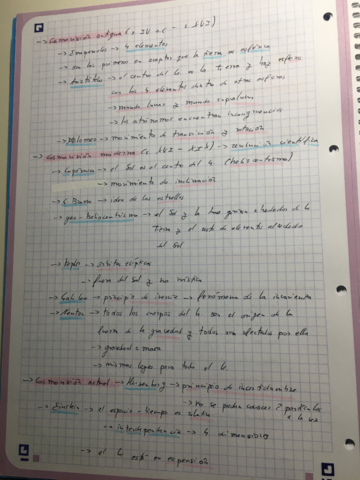 → Cosmovisión antigua (s. IV a.c - s. XVI)
→ Empédocles → 4 elementos
→ son los primeros en aceptar que la tierra es esférica
→ Aristóteles → el centro del es la tierra y hay esferas
con los 4 elementos dentro de otras esferas
→ mundo lunar y mundo supralunar
→ los astrónomos encuentran incongruencias
→ Ptolomeo → movimiento de translación y rotación
→ Cosmovisión moderna (s. XVI - XIX) → revolución científica
→ Copérnico → el Sol es el centro del (heliocentrismo)
→ movimiento de inclinación
→ G. Bruno → idea de las estrellas
→ geo-heliocentrismo → el Sol y la luna giran alrededor de la
Tierra y el resto de elementos alrededor
del Sol
→ Kepler → órbitas elípticas
→ fuerza del Sol y no mística
→ Galileo → principio de inercia → fenómeno de la
→ Newton → todos los cuerpos del son el origen de la
fuerza de la gravedad y todos son afectados por ella
→ gravedad = masa
→ mismas leyes para todo el
→ Cosmovisión actual → Heisenberg → principio de incertidumbre
→ no se puede conocer partículas
a la vez
→ Einstein → el espacio-tiempo es relativo
→ interdependencia → 4 dimensiones
→ el está en expansión